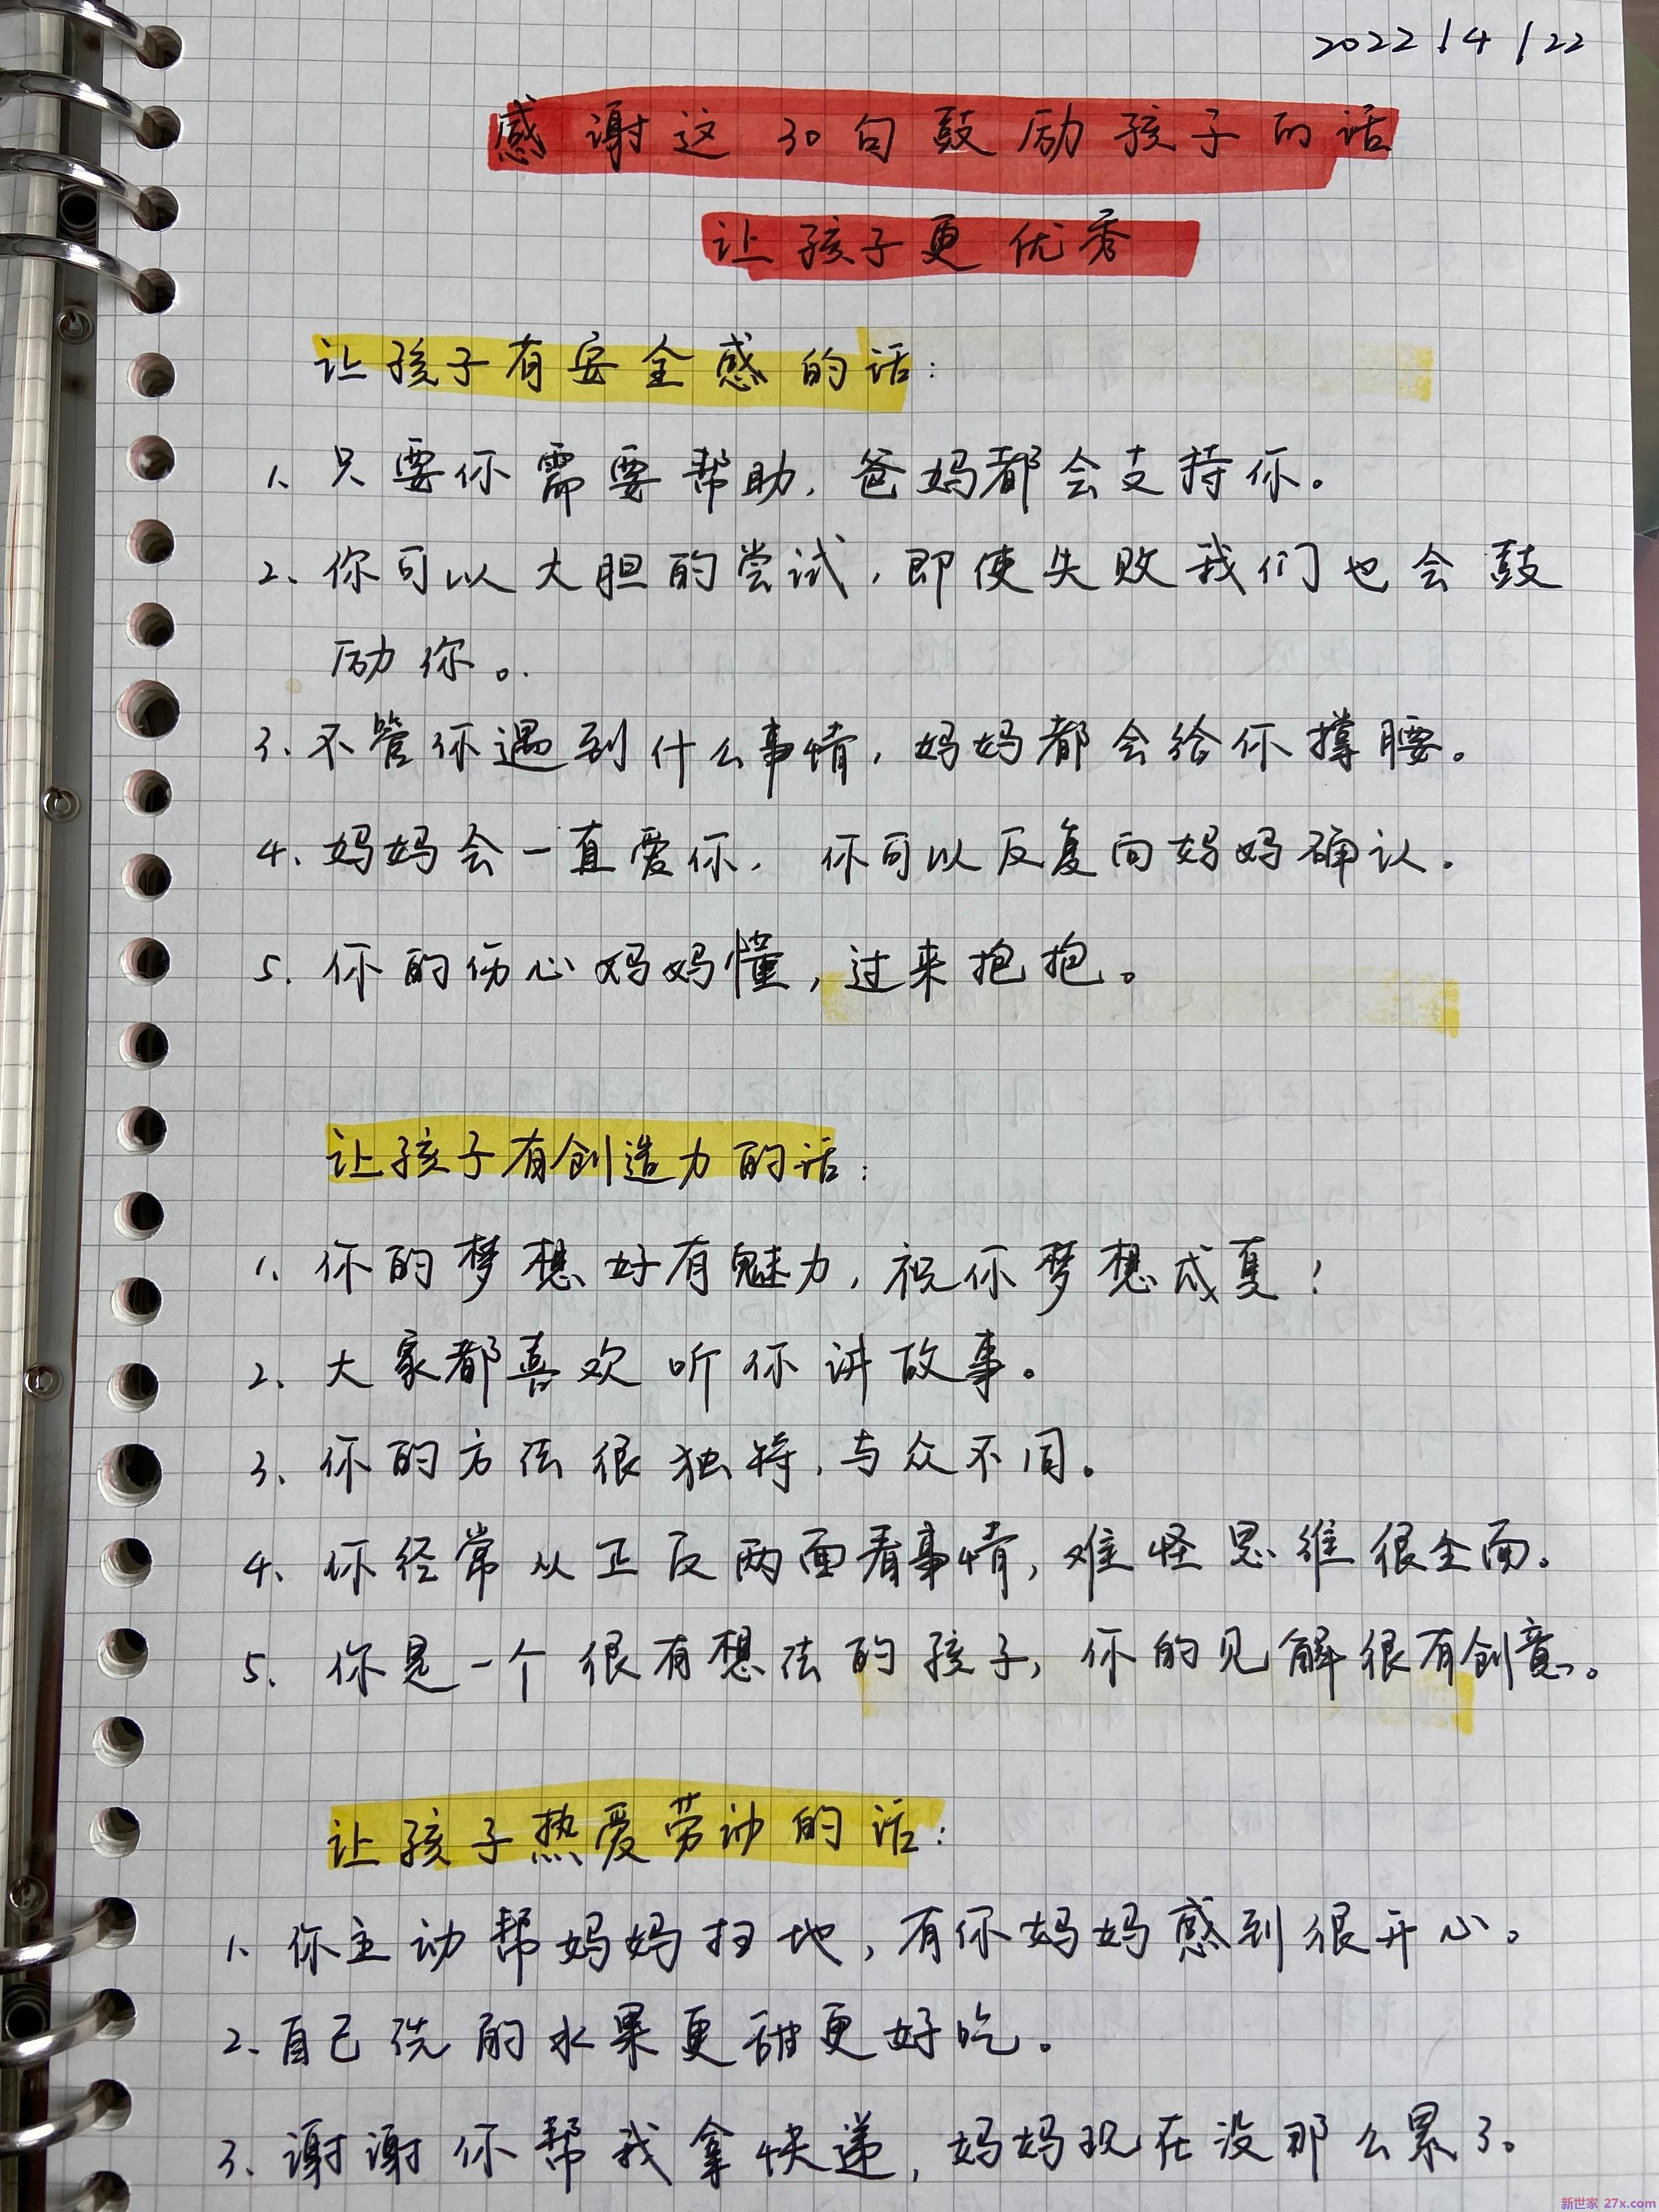 2022/4/22
感谢这30句鼓励孩子的话
让孩子更优秀
让孩子有安全感的话:
1、只要你需要帮助,爸妈都会支持你。
2、你可以大胆的尝试,即使失败我们也会鼓
励你。
3、不管你遇到什么事情,妈妈都会给你撑腰。
4、妈妈会一直爱你,你可以反复向妈妈确认。
5、你的伤心妈妈懂,过来抱抱。
让孩子有创造力的话:
1、你的梦想好有魅力,祝你梦想成真!
2、大家都喜欢听你讲故事。
3、你的方法很独特,与众不同。
4、你经常从正反两面看事情,难怪思维很全面。
5、你是一个很有想法的孩子,你的见解很有创意。
让孩子热爱劳动的话:
1、你主动帮妈妈扫地,有你妈妈感到很开心。
2、自己洗的水果更甜更好吃。
3、谢谢你帮我拿快递,妈妈现在没那么累了。
新世家 27x.com